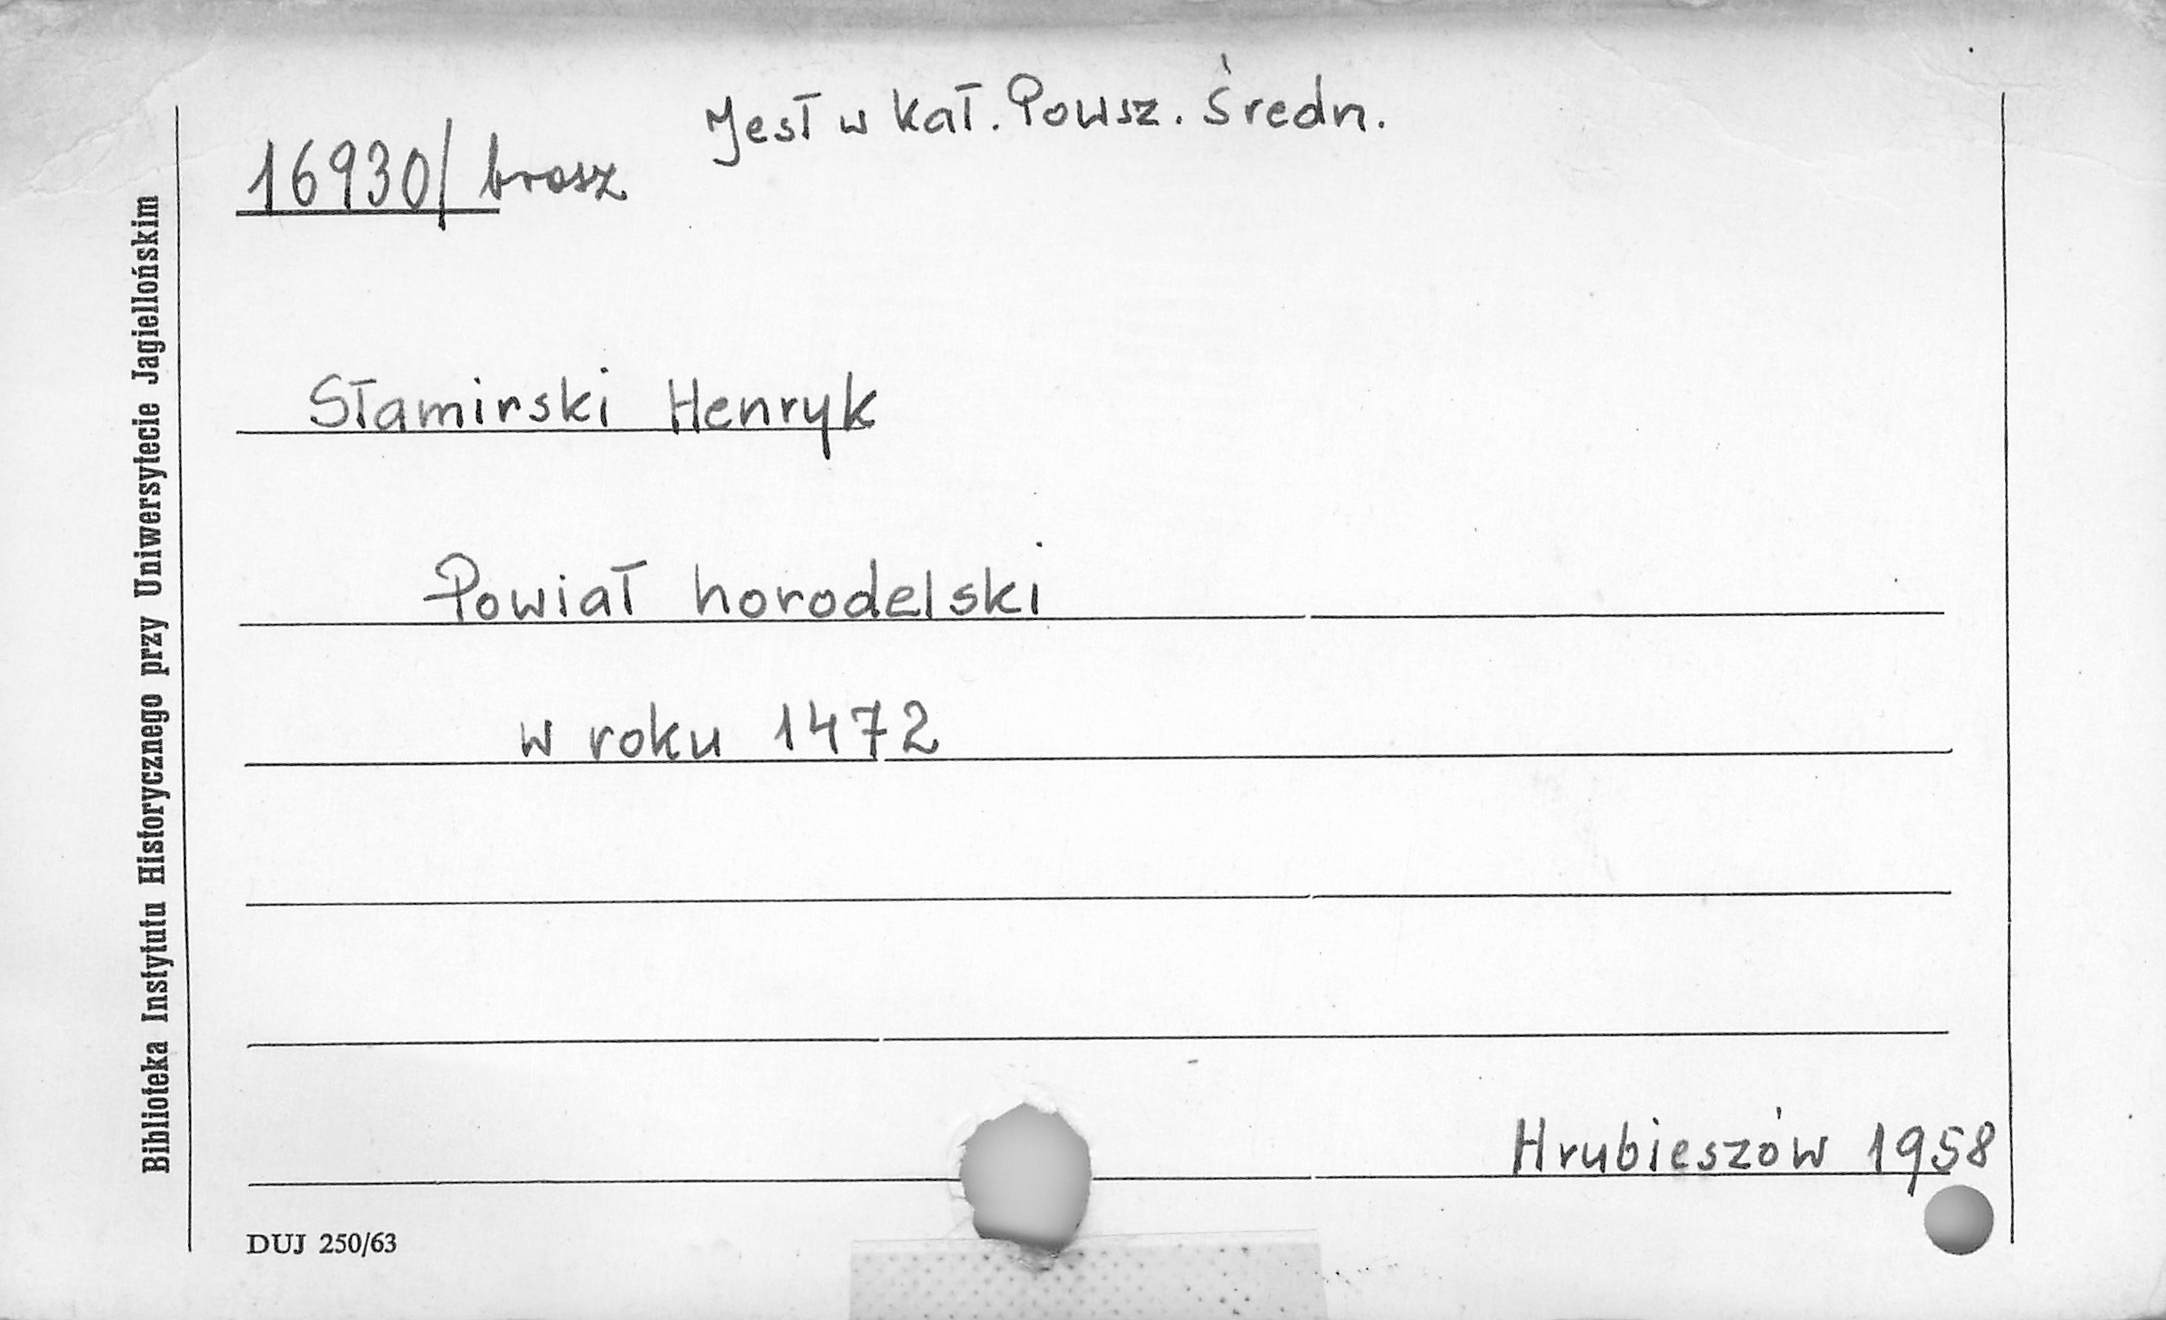 Jest w kat. Powsz. Średn.
16930/brosz
Stamirski Henryk
Powiat horodelski
w roku 1472
Hrubieszów 1958
DUJ 250/63
Biblioteka Instytutu Historycznego przy Uniwersytecie Jagiellońskim